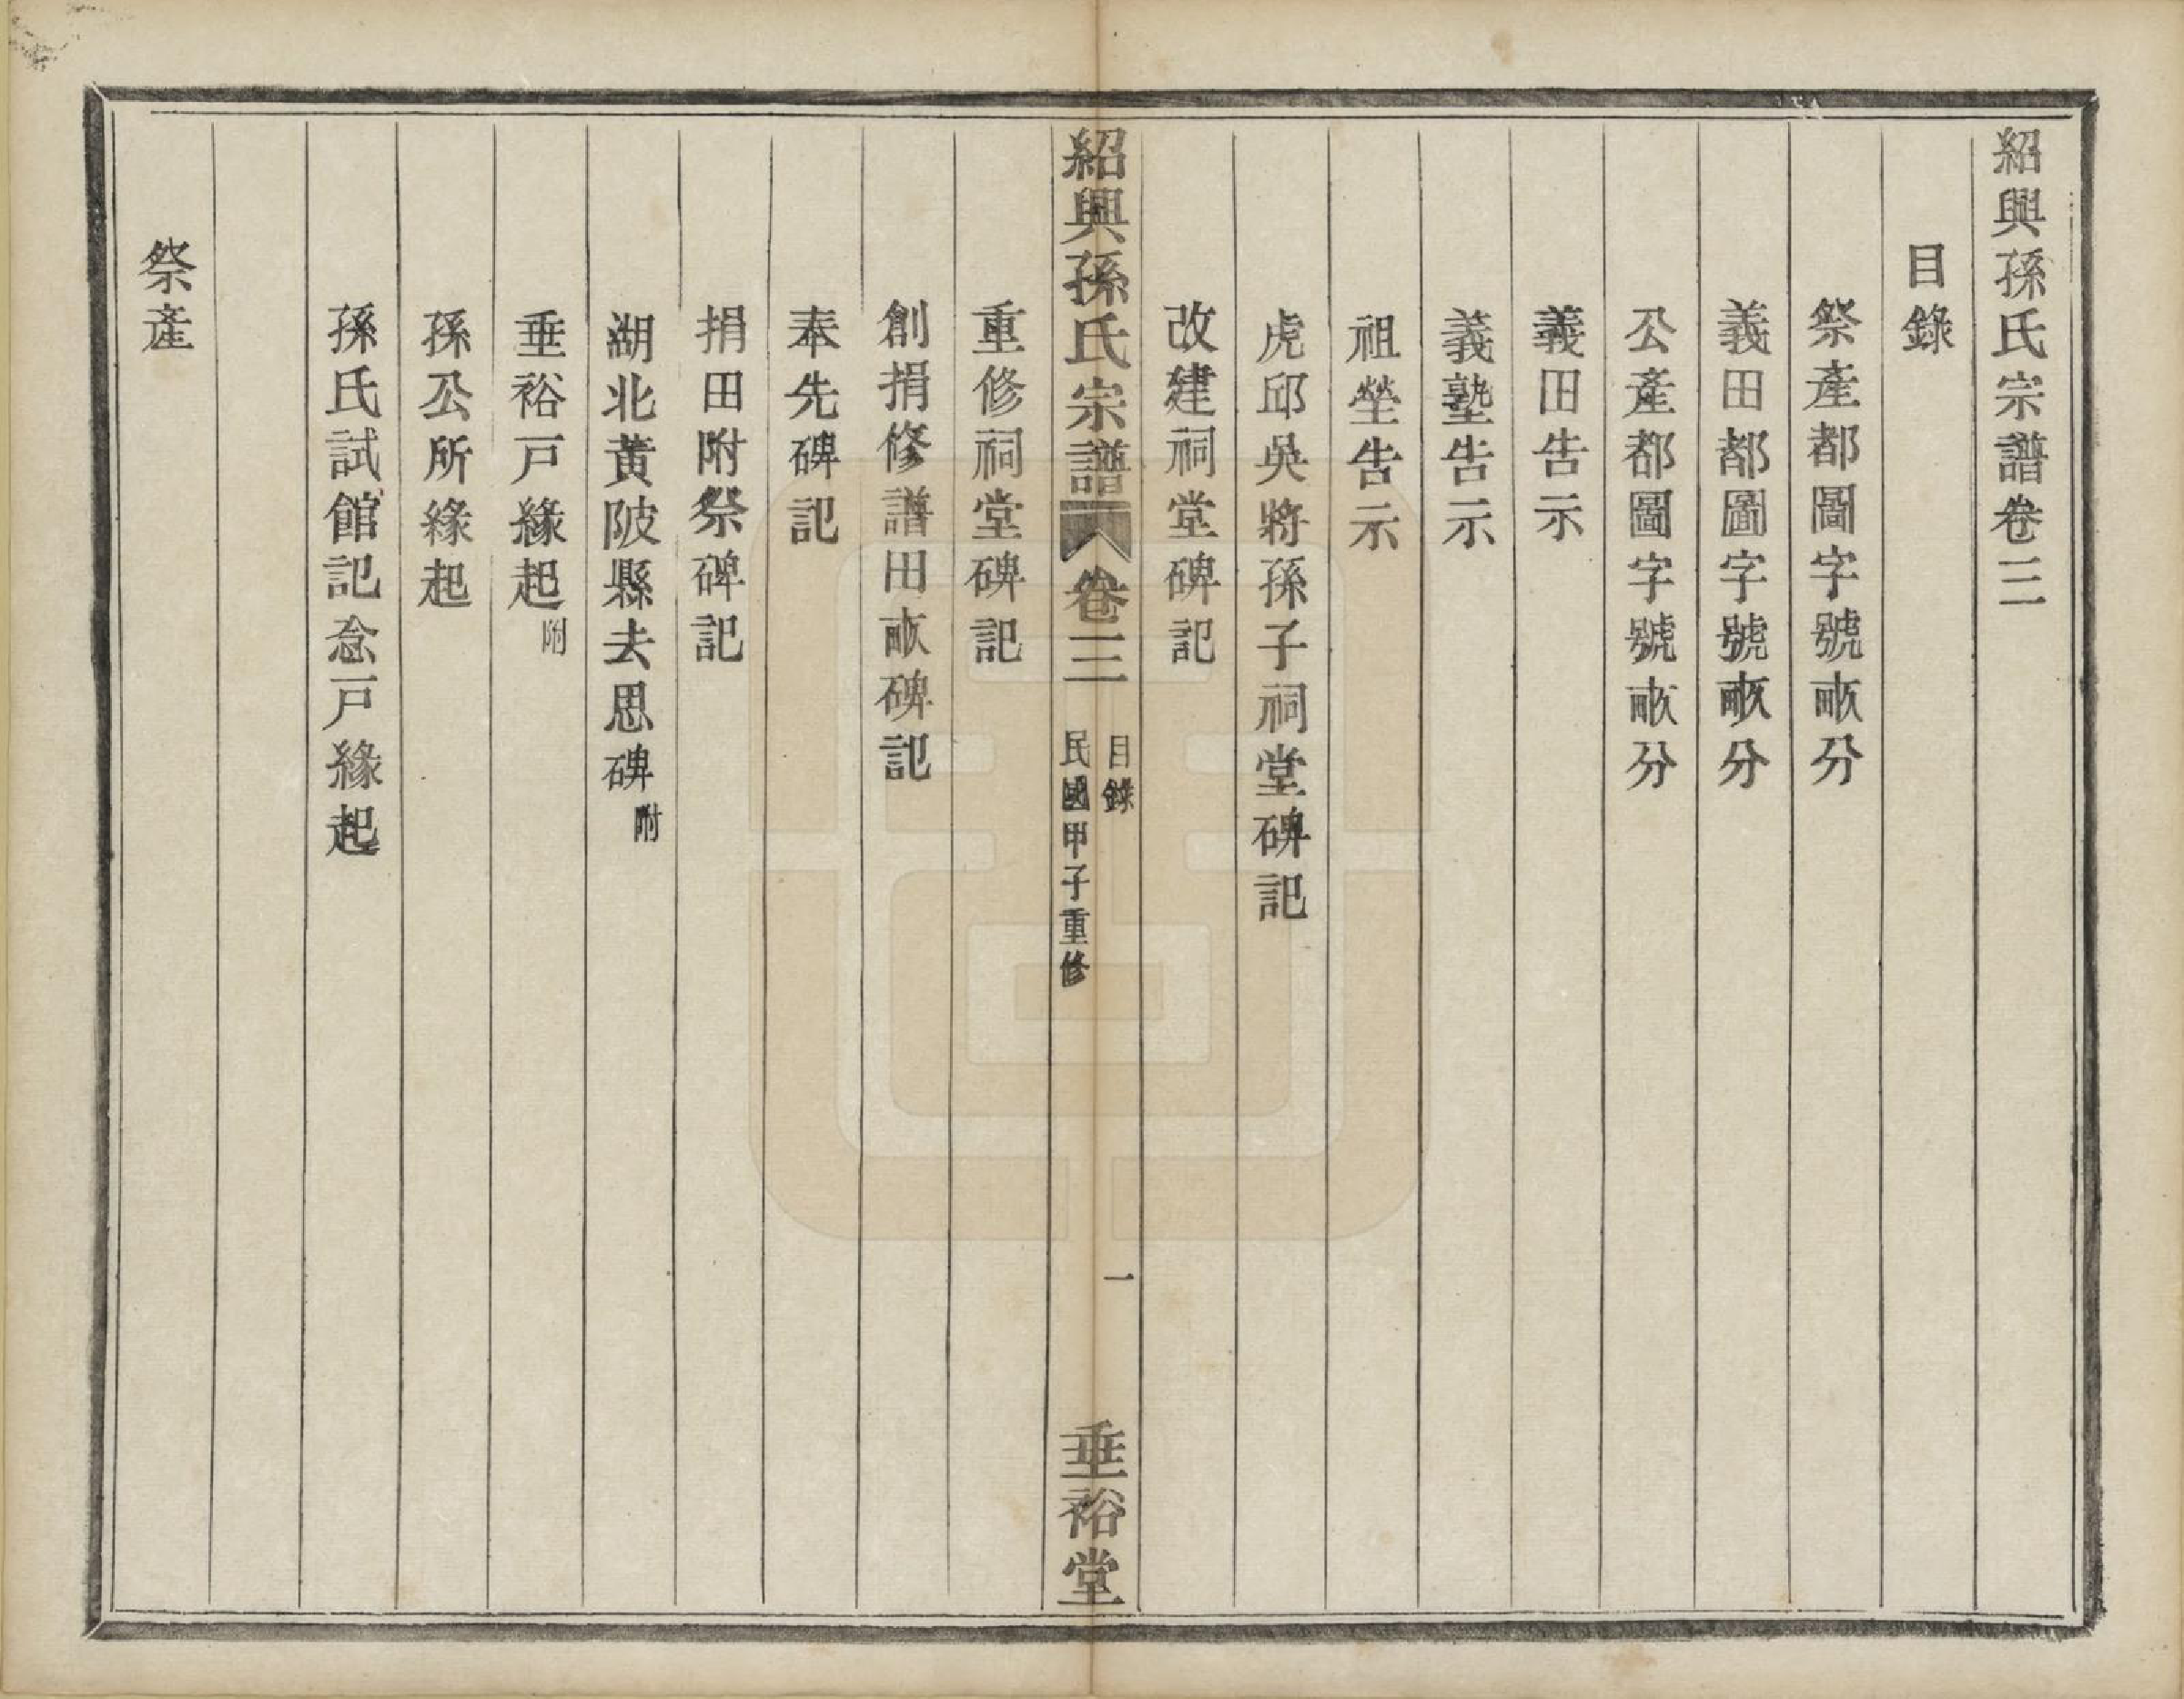 紹興孫氏宗譜卷三
目錄
祭產都圖字號畝分
義田都圖字號畝分
公產都圖字號畝分
義田告示
義塾告示
祖塋告示
虎邱吳將孫子祠堂碑記
改建祠堂碑記
紹興孫氏宗譜
卷三
目錄
民國甲子重修
一
垂裕堂
重修祠堂碑記
創捐修譜田畝碑記
奉先碑記
捐田附祭碑記
湖北黃陂縣去思碑附
垂裕戸緣起附
孫公所緣起
孫氏試館記念戸緣起
祭產